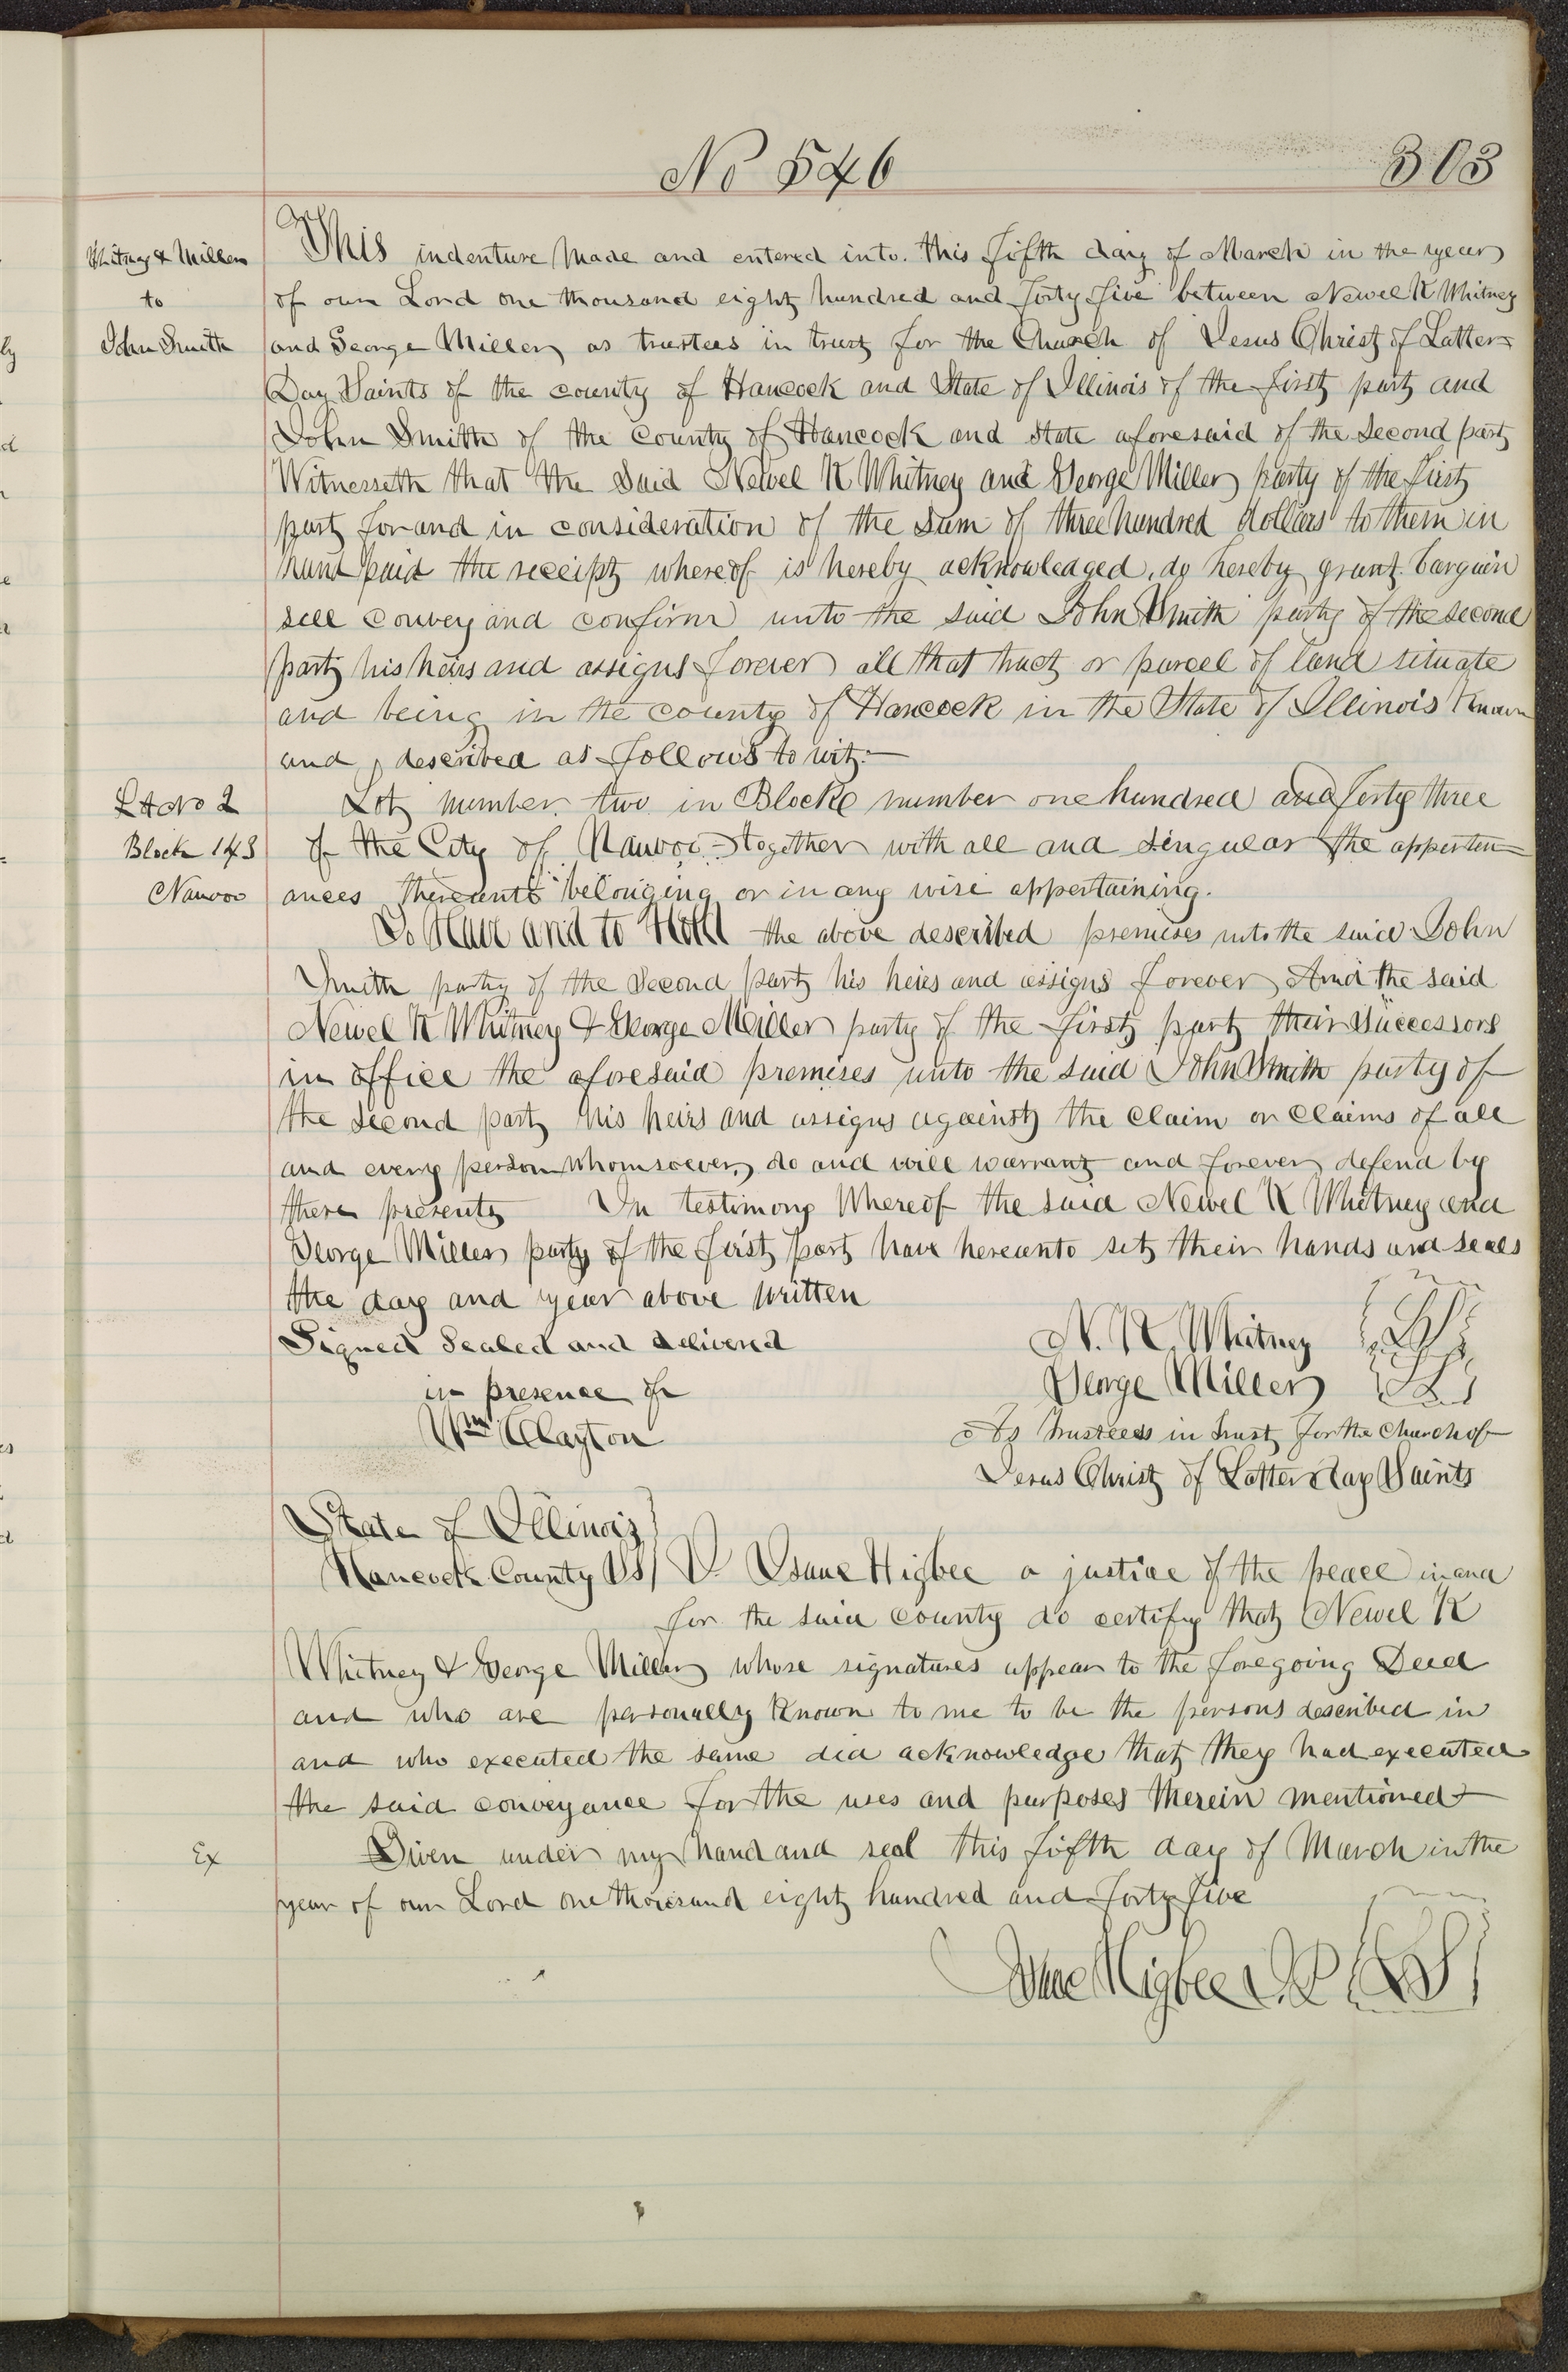 No 546
303
Whitney & Miller
to
John Smith
This indenture made and entered into this fifth day of March in the year
of our Lord one thousand eight hundred and forty five between Newel K Whitney
and George Miller as trustees in trust for the Church of Jesus Christ of Latter
Day Saints of the county of Hancock and State of Illinois of the first part and
John Smith of the County of Hancock and state aforesaid of the second part
Witnesseth that the said Newel K Whitney and George Miller party of the first
part for and in consideration of the sum of three hundred dollars to them in
hand paid the receipt whereof is hereby acknowledged, do hereby grant bargain
sell convey and confirm unto the said John Smith party of the second
part his heirs and assigns forever all that tract or parcel of land situate
and being in the county of Hancock in the State of Illinois Known
and described as follows to wit:—
Lot No 2
Block 143
Nauvoo
Lot number two in Block number one hundred and forty three
of the City of Nauvoo – together with all and singular the apperten=
ances thereunto belonging or in any wise appertaining.
To Have and to Hold the above described premises unto the said John
Smith party of the second part his heirs and assigns forever And the said
Newel K Whitney & George Miller party of the first part their successors
in office the aforesaid premises unto the said John Smith party of
the second part his heirs and assigns against the claim or claims of all
and every person whomsoever, do and will warrant and forever defend by
these presents In testimony Whereof the said Newel K Whitney and
George Miller party of the first part have hereunto set their hands and seals
the day and year above written
Signed Sealed and delivered
in presence of
Wm Clayton
N. K. Whitney LS
George Miller LS
As trustees in trust for the Church of
Jesus Christ of Latter day Saints
State of Illinois
Hancock County SS I Isaac Higbee a justice of the peace in and
for the said county do certify that Newel K
Whitney & George Miller whose signatures appear to the foregoing Deed
and who are personally Known to me to be the persons described in
and who executed the same did acknowledge that they had executed
the said conveyance for the uses and purposes therein mentioned
Ex
Given under my hand and seal this fifth day of March in the
year of our Lord one thousand eight hundred and forty five
Isaac Higbee J.P. LS